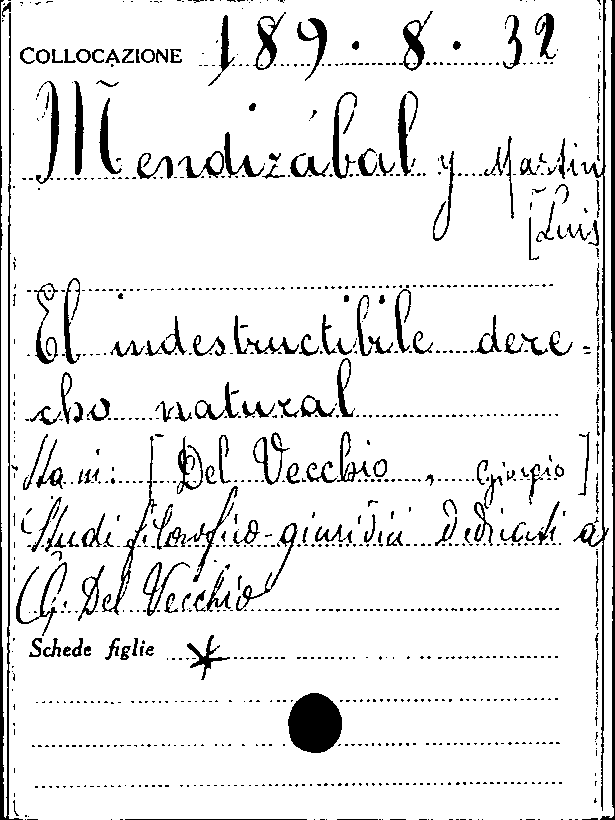 COLLOCAZIONE 189.8.32
Mendizábal y Martin
[Luis
El indestructibile dere=
cho natural
Sta in: [Del Vecchio, Giorgio]
Studi filosofico-giuridici dedicati a
G. Del Vecchio
Schede figlie *